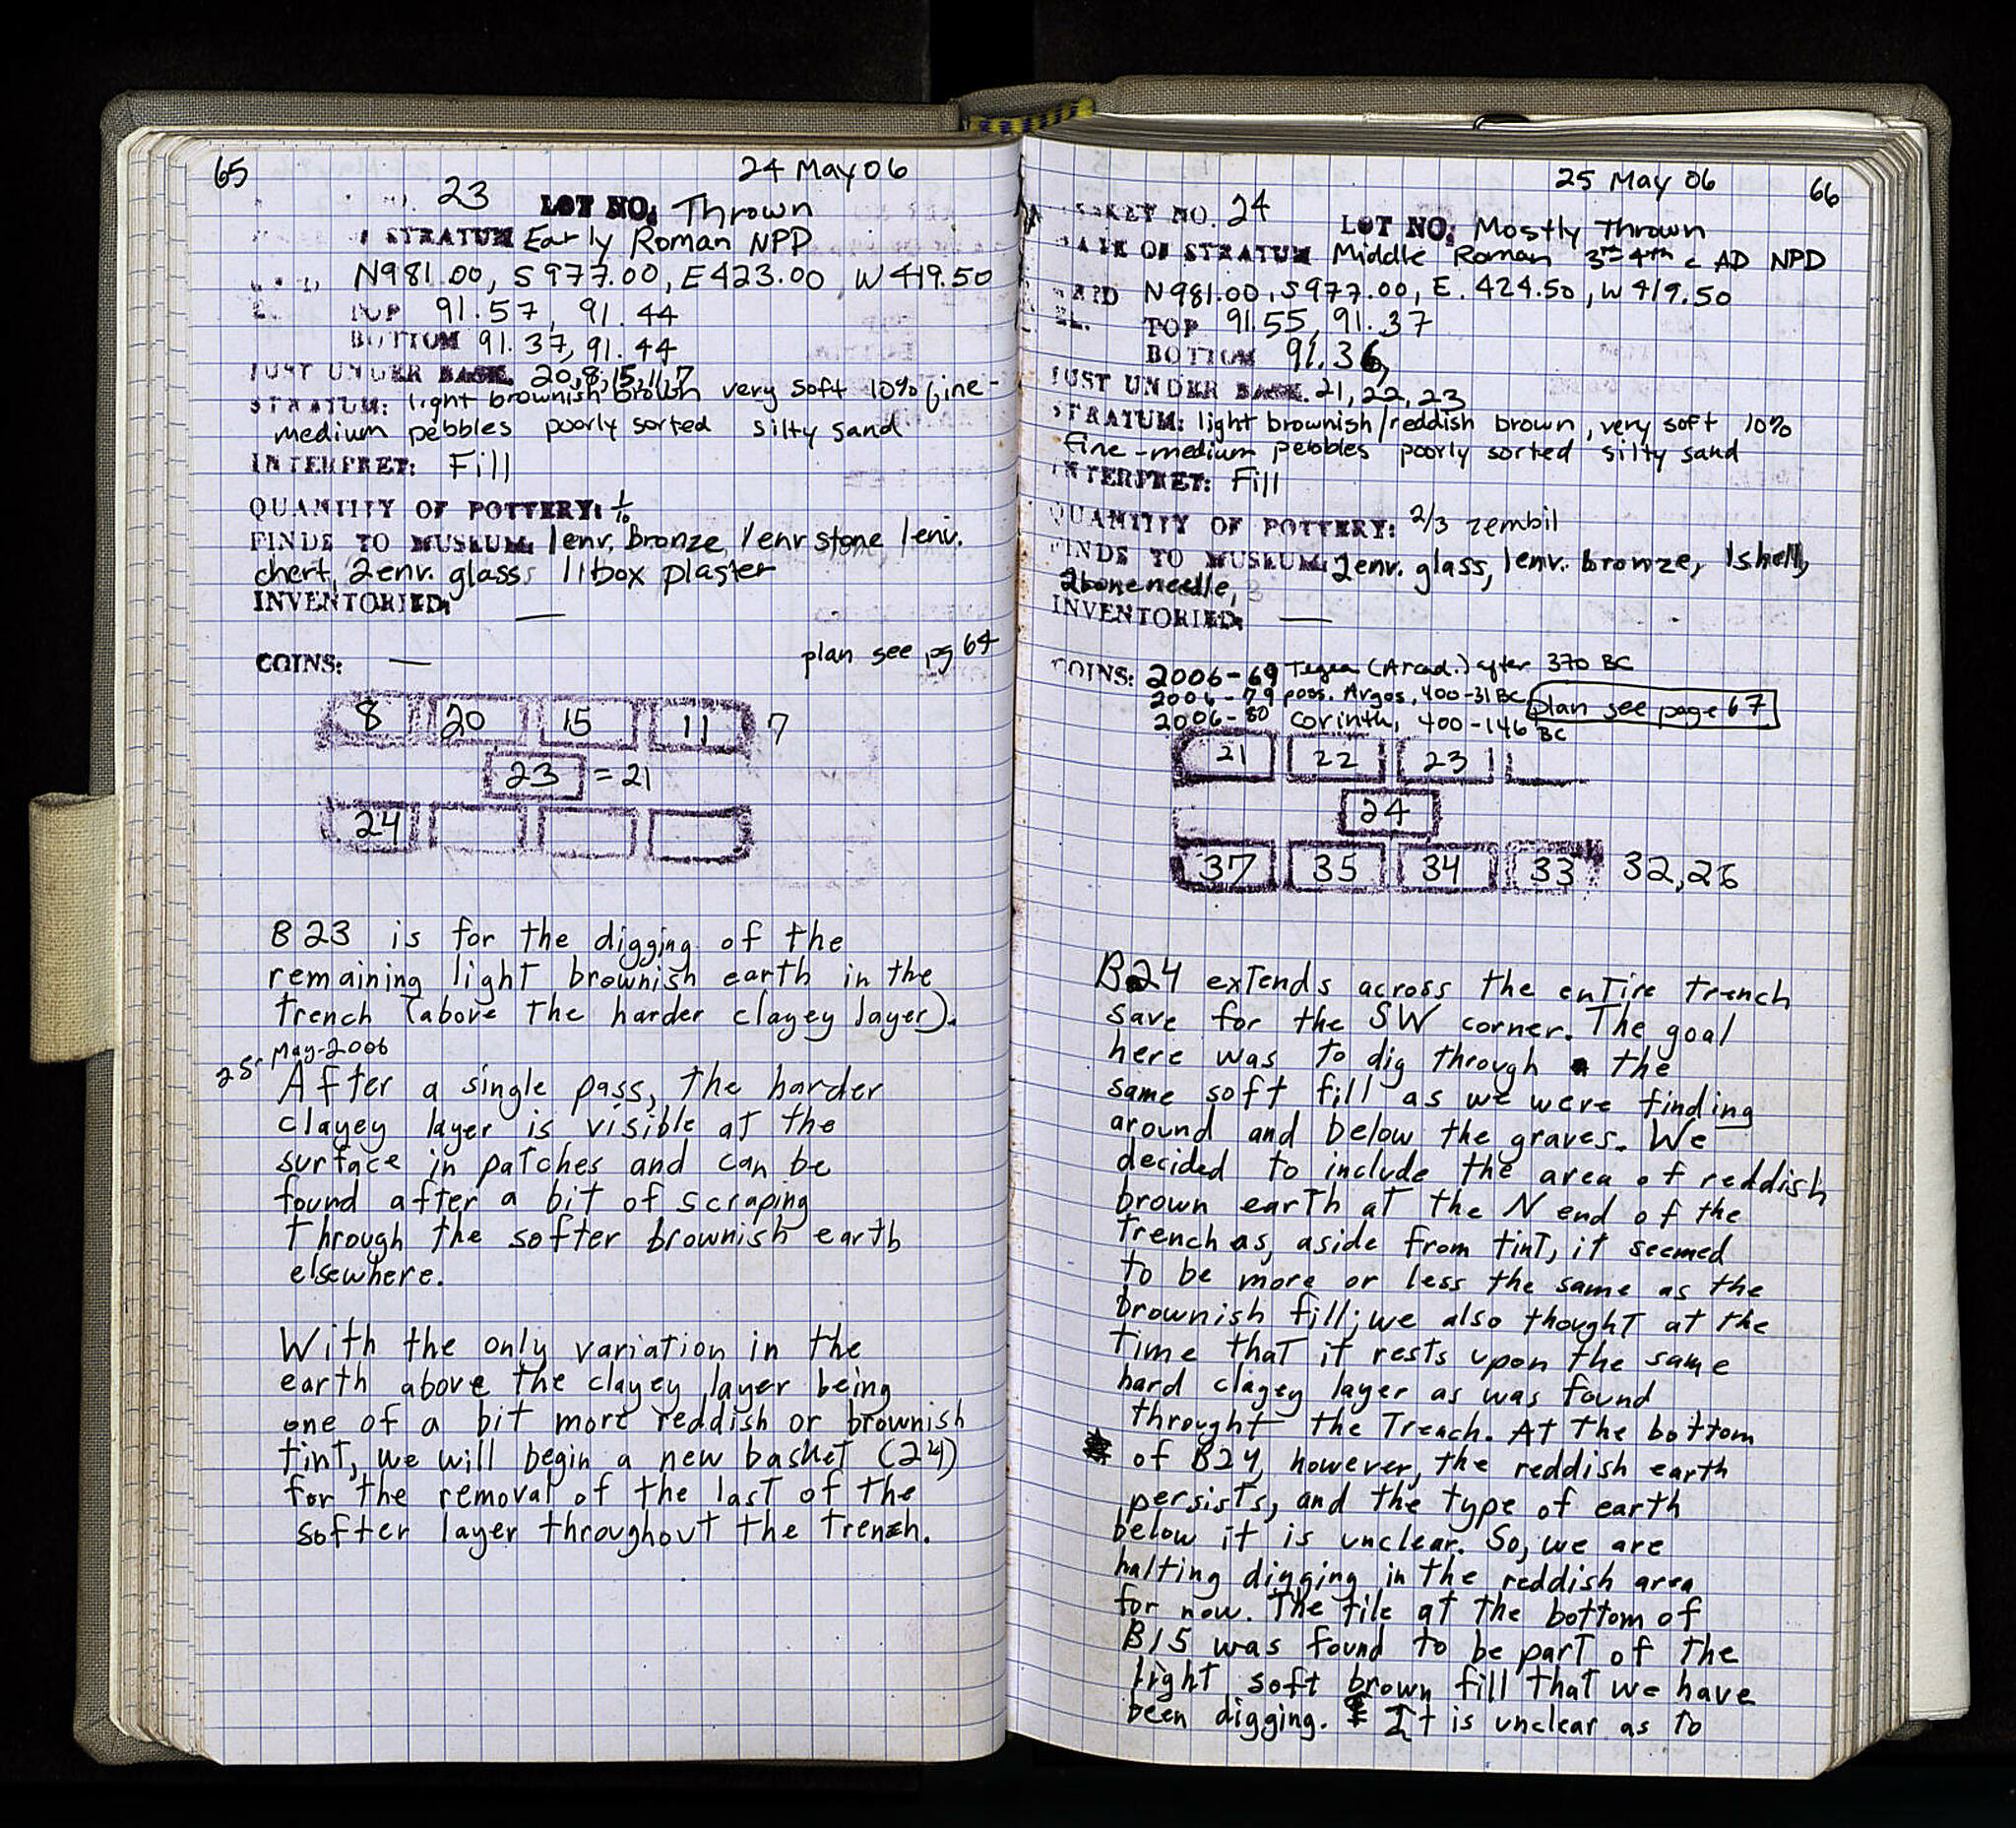 65
24 May 06
23 LOT NO: Thrown
STRATUM Early Roman NPD
N981.00, S977.00, E423.00 W419.50
TOP 91.57, 91.44
BOTTOM 91.37, 91.44
JUST UNDER BASK. 20,8,15,11,7
STRATUM: light brownish brown very soft 10% fine-
medium pebbles poorly sorted silty sand
INTERPRET: Fill
QUANTITY OF POTTERY: 1/10
FINDS TO MUSEUM: 1env. bronze, 1env stone 1env.
chert, 2env. glass 1 box plaster
INVENTORIED: —
COINS: —
plan see pg 64
8 20 15 11 7
23 = 21
24
B23 is for the digging of the
remaining light brownish earth in the
trench (above the harder clayey layer).
25 May-2006
After a single pass, the harder
clayey layer is visible at the
surface in patches and can be
found after a bit of scraping
through the softer brownish earth
elsewhere.
With the only variation in the
earth above the clayey layer being
one of a bit more reddish or brownish
tint, we will begin a new basket (24)
for the removal of the last of the
softer layer throughout the trench.
25 May 06
66
BASKET NO. 24 LOT NO: Mostly Thrown
DATE OF STRATUM Middle Roman 3rd-4th c AD NPD
GRID N981.00, S977.00, E. 424.50, W419.50
EL. TOP 91.55, 91.37
BOTTOM 91.36,
JUST UNDER BASK. 21, 22, 23
STRATUM: light brownish/reddish brown, very soft 10%
fine-medium pebbles poorly sorted silty sand
INTERPRET: Fill
QUANTITY OF POTTERY: 2/3 zembil
FINDS TO MUSEUM: 2env. glass, 1env. bronze, 1shell,
2bone needle,
INVENTORIED: —
COINS: 2006-69 Tegea (Arcad.) after 370 BC
2006-79 poss. Argos, 400-31 BC
plan see page 67
2006-80 Corinth, 400-146 BC
21 22 23
24
37 35 34 33 32, 26
B24 extends across the entire trench
save for the SW corner. The goal
here was to dig through the
same soft fill as we were finding
around and below the graves. We
decided to include the area of reddish
brown earth at the N end of the
trench as, aside from tint, it seemed
to be more or less the same as the
brownish fill; we also thought at the
time that it rests upon the same
hard clagey layer as was found
throught the trench. At the bottom
of B24, however, the reddish earth
persists, and the type of earth
below it is unclear. So, we are
halting digging in the reddish area
for now. The tile at the bottom of
B15 was found to be part of the
light soft brown fill that we have
been digging. It is unclear as to